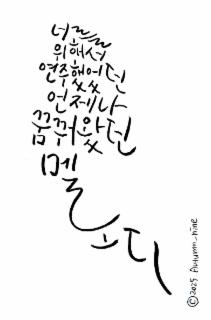 너를
위해서
연주했었던
언제나
꿈꿔왔던
멜로디
©2025 Autumn_nine